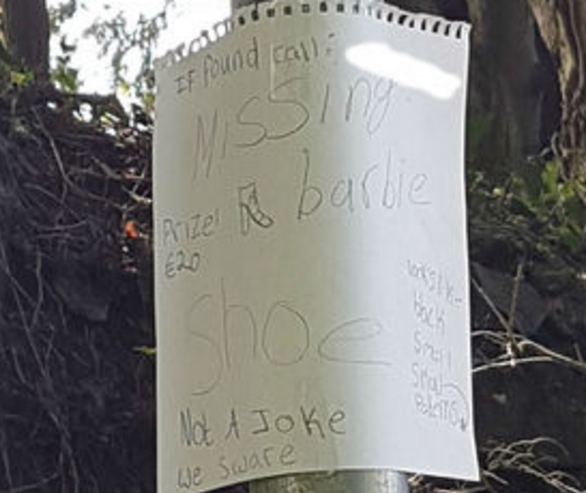 IF found call:
Missing
Prize!
barbie
€20
Shoe
looks like-
black
Small
Small
Not A Joke
We sware